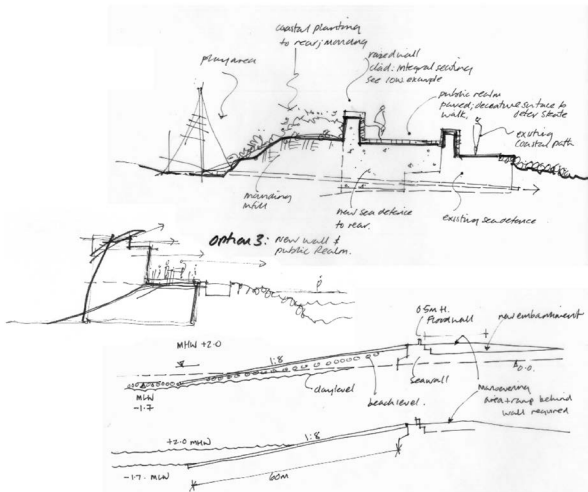 coastal planting
to rear; mounding
play area
raised wall
clad: integral seating
see low example
public realm
paved; decorative surface to
walk, deter skate
existing
coastal path
mounding
infill
new sea defence
to rear.
existing sea defence
option 3: New wall &
public realm.
0.5m H.
floodwall
new embankment
MHW +2.0
1:8
MLW
-1.7
claylevel
beachlevel.
seawall
O.D.
manoeuvring
area + ramp behind
wall required
+2.0 MHW
1:8
-1.7 MLW
60m